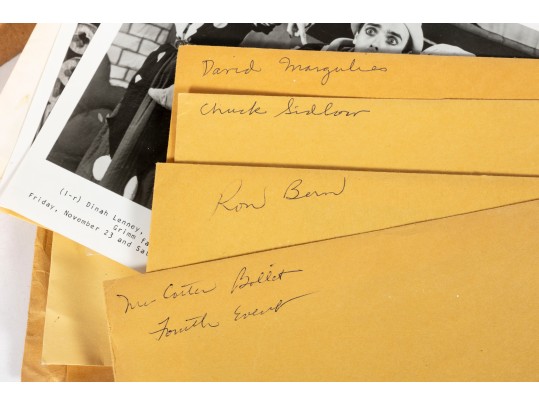 David Margulies
Chuck Sidlow
Ron Bern
Mc Cotter Ballet
Fourth Event
(l-r) Dinah Lenney,
Grimm fa
Friday, November 23 and Sat